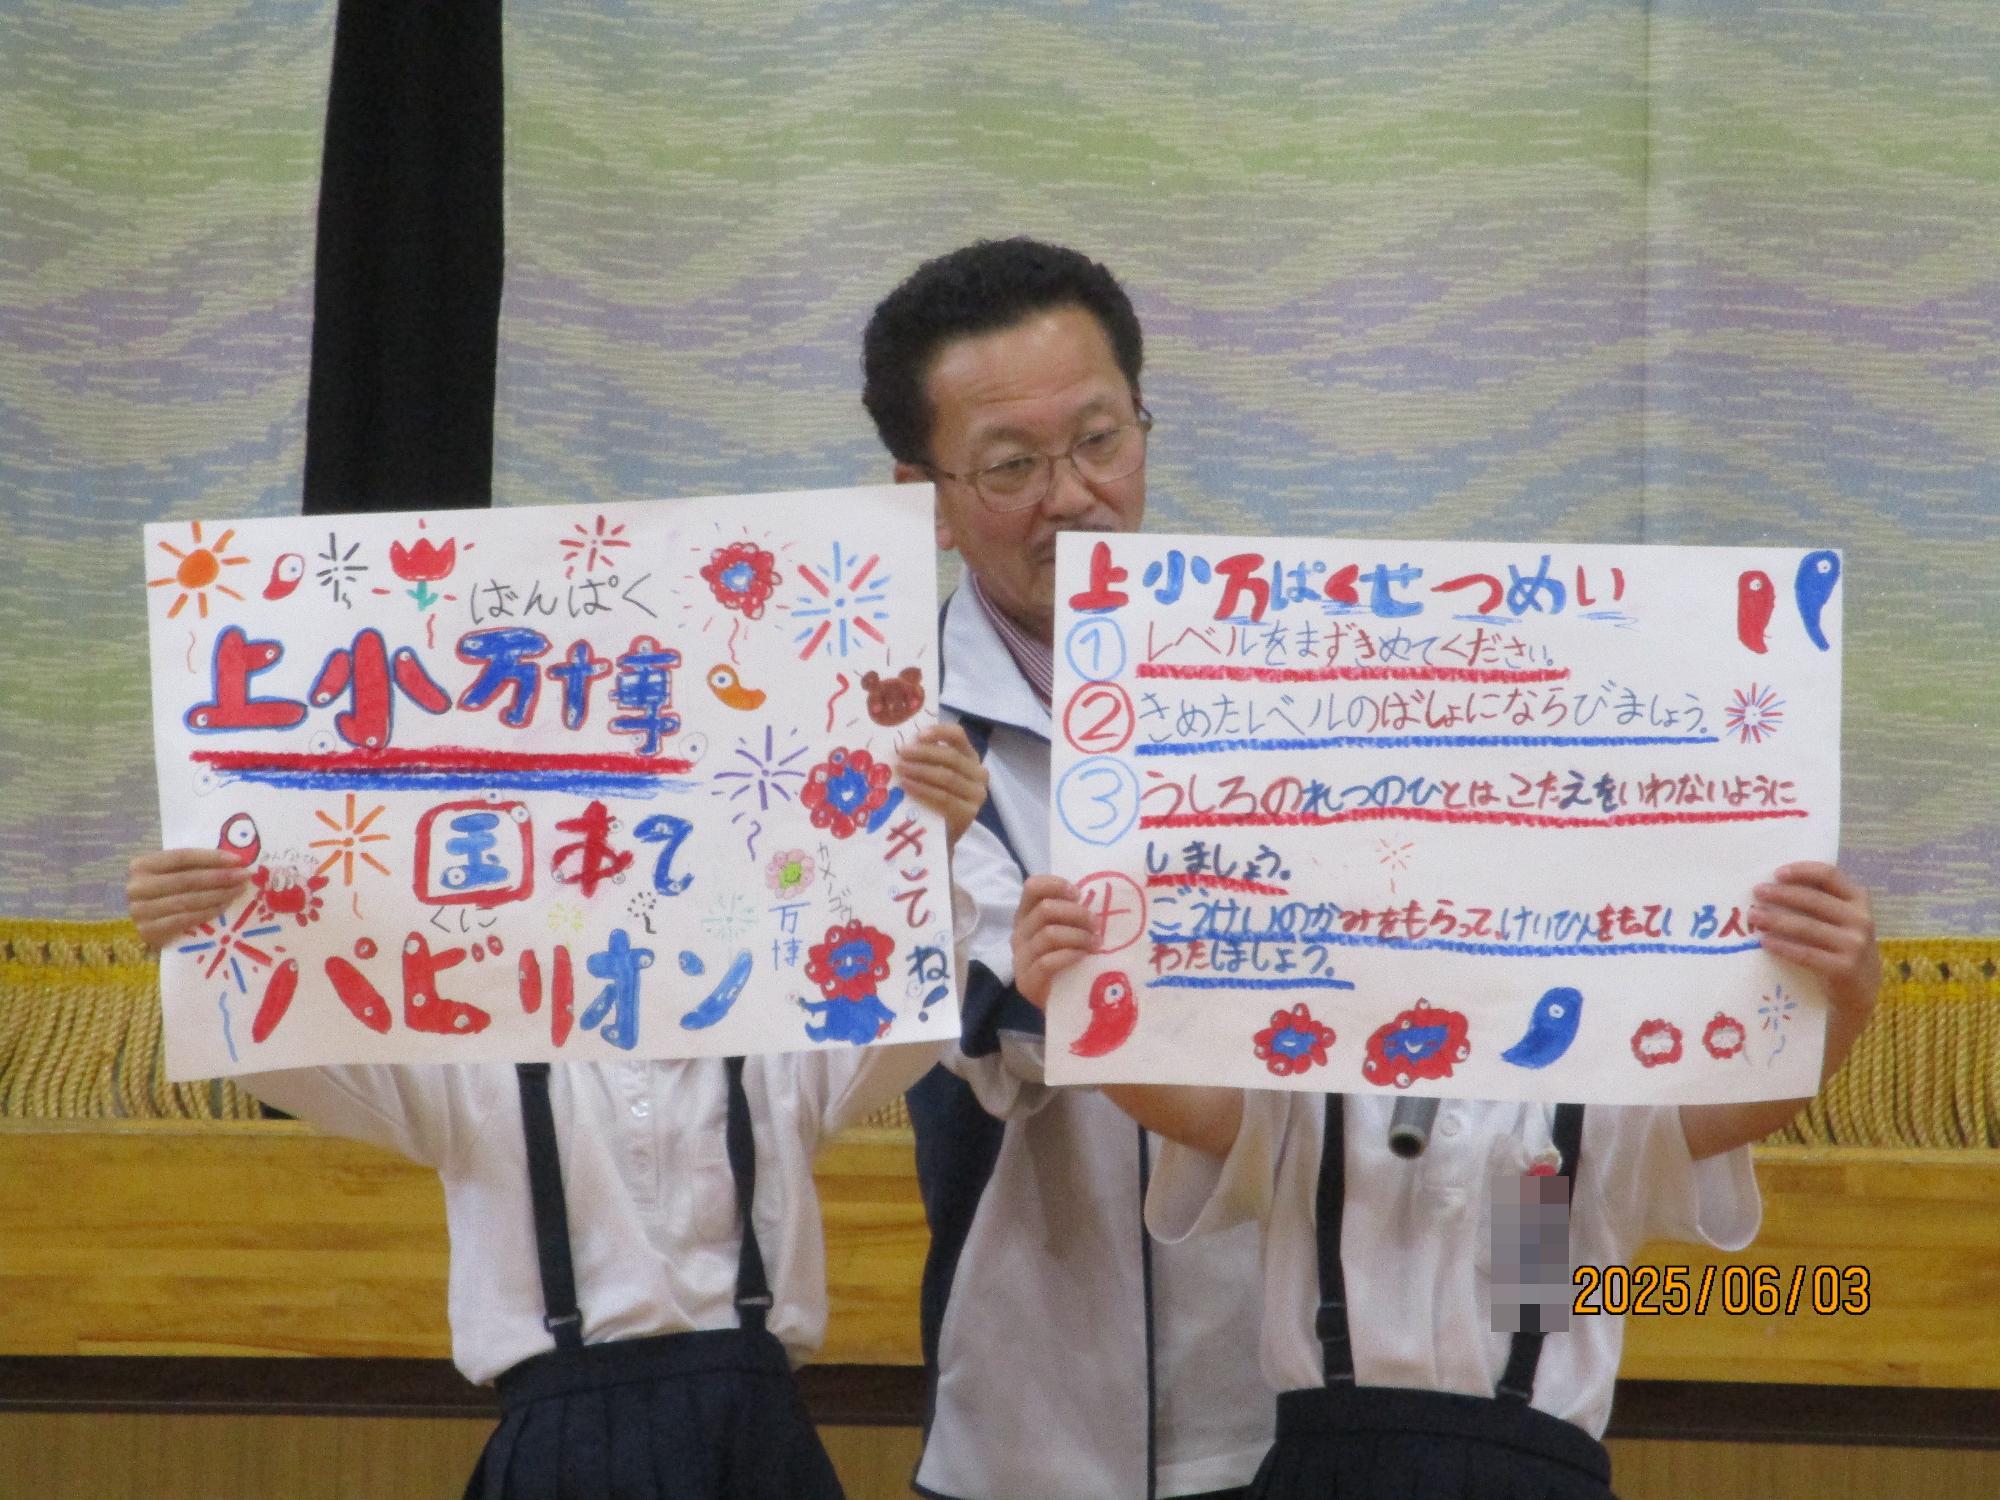 ばんぱく
上小万博
国あて
くに
パビリオン
カメーゴウ
万博
きってね!
上小万ぱくせつめい
① レベルをまずきめてください。
② きめたレベルのばしょにならびましょう。
③ うしろのれつのひとはこたえをいわないように
しましょう。
④ ごうけいのかみをもらって、けいひんをもている人に
わたしましょう。
2025/06/03